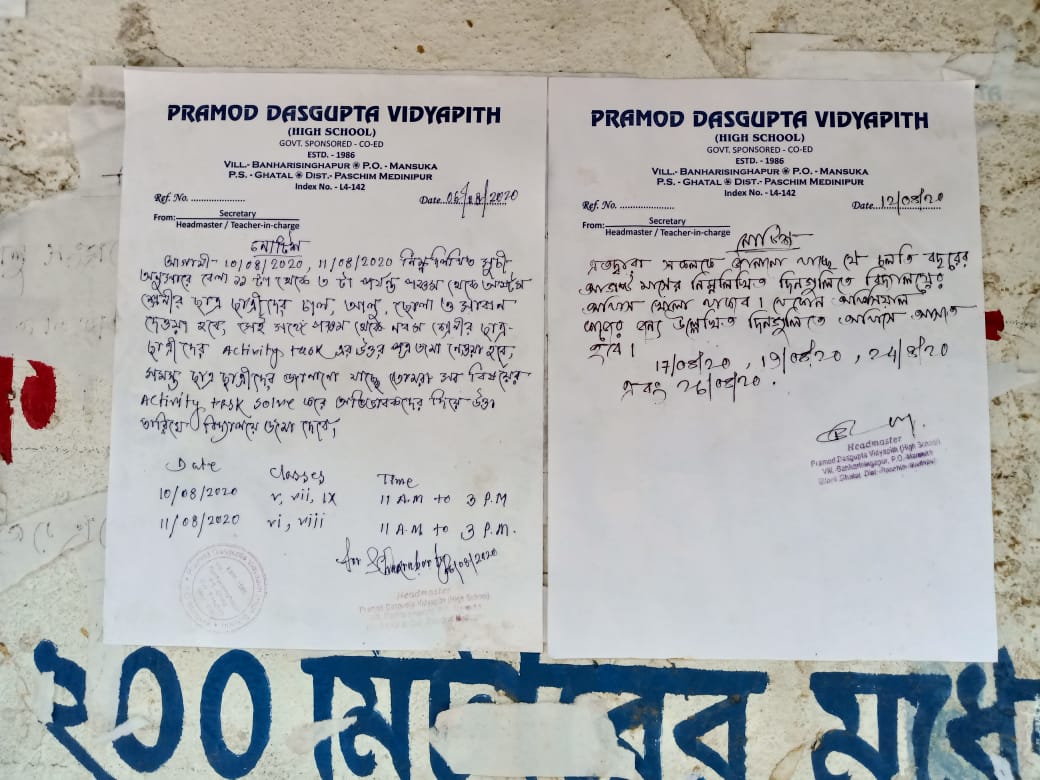 PRAMOD DASGUPTA VIDYAPITH
(HIGH SCHOOL)
GOVT. SPONSORED - CO-ED
ESTD. - 1986
VILL.- BANHARISINGHAPUR ❀ P.O. - MANSUKA
P.S. - GHATAL ❀ DIST.- PASCHIM MEDINIPUR
Index No. - L4-142
Ref. No. ...................... Date 06/08/2020
From: Secretary
Headmaster / Teacher-in-charge
নোটিশ
আগামী- 10/08/2020, 11/08/2020 নিম্নলিখিত সূচী
অনুসারে বেলা ১১ টা থেকে ৩ টা পর্যন্ত পঞ্চম থেকে অষ্টম
শ্রেনীর ছাত্র ছাত্রীদের চাল, আলু, ছোলা ও সাবান
দেওয়া হবে, সেই সঙ্গে পঞ্চম থেকে নবম শ্রেনীর ছাত্র-
ছাত্রীদের Activity task এর উত্তর পত্র জমা নেওয়া হবে,
সমস্ত ছাত্র ছাত্রীদের জানানো যাচ্ছে তোমরা সব বিষয়ের
Activity task solve করে অভিভাবকদের দিয়ে উক্ত
তারিখে বিদ্যালয়ে জমা দেবে,
Date Classes Time
10/08/2020 v, vii, ix 11 A.M to 3 P.M
11/08/2020 vi, viii 11 A.M to 3 P.M.
06/08/2020
Headmaster
Pramod Dasgupta Vidyapith (High School)
PRAMOD DASGUPTA VIDYAPITH
(HIGH SCHOOL)
GOVT. SPONSORED - CO-ED
ESTD. - 1986
VILL.- BANHARISINGHAPUR ❀ P.O. - MANSUKA
P.S. - GHATAL ❀ DIST.- PASCHIM MEDINIPUR
Index No. - L4-142
Ref. No. ...................... Date 12/08/20
From: Secretary
Headmaster / Teacher-in-charge
নোটিশ
এতদ্বারা সকলকে জানানো যাচ্ছে যে চলতি বছরের
আগস্ট মাসের নিম্নলিখিত দিনগুলিতে বিদ্যালয়ের
অফিস খোলা থাকবে। যে কোন অফিসিয়াল
কাজের জন্য উল্লেখিত দিনগুলিতে অফিসে আসতে
হবে।
17/08/20, 19/08/20, 24/8/20
এবং 26/08/20.
Headmaster
Pramod Dasgupta Vidyapith (High School)
Vill.-Banharisingapur, P.O.-Mansuka
২০০ মিটারের মধ্যে